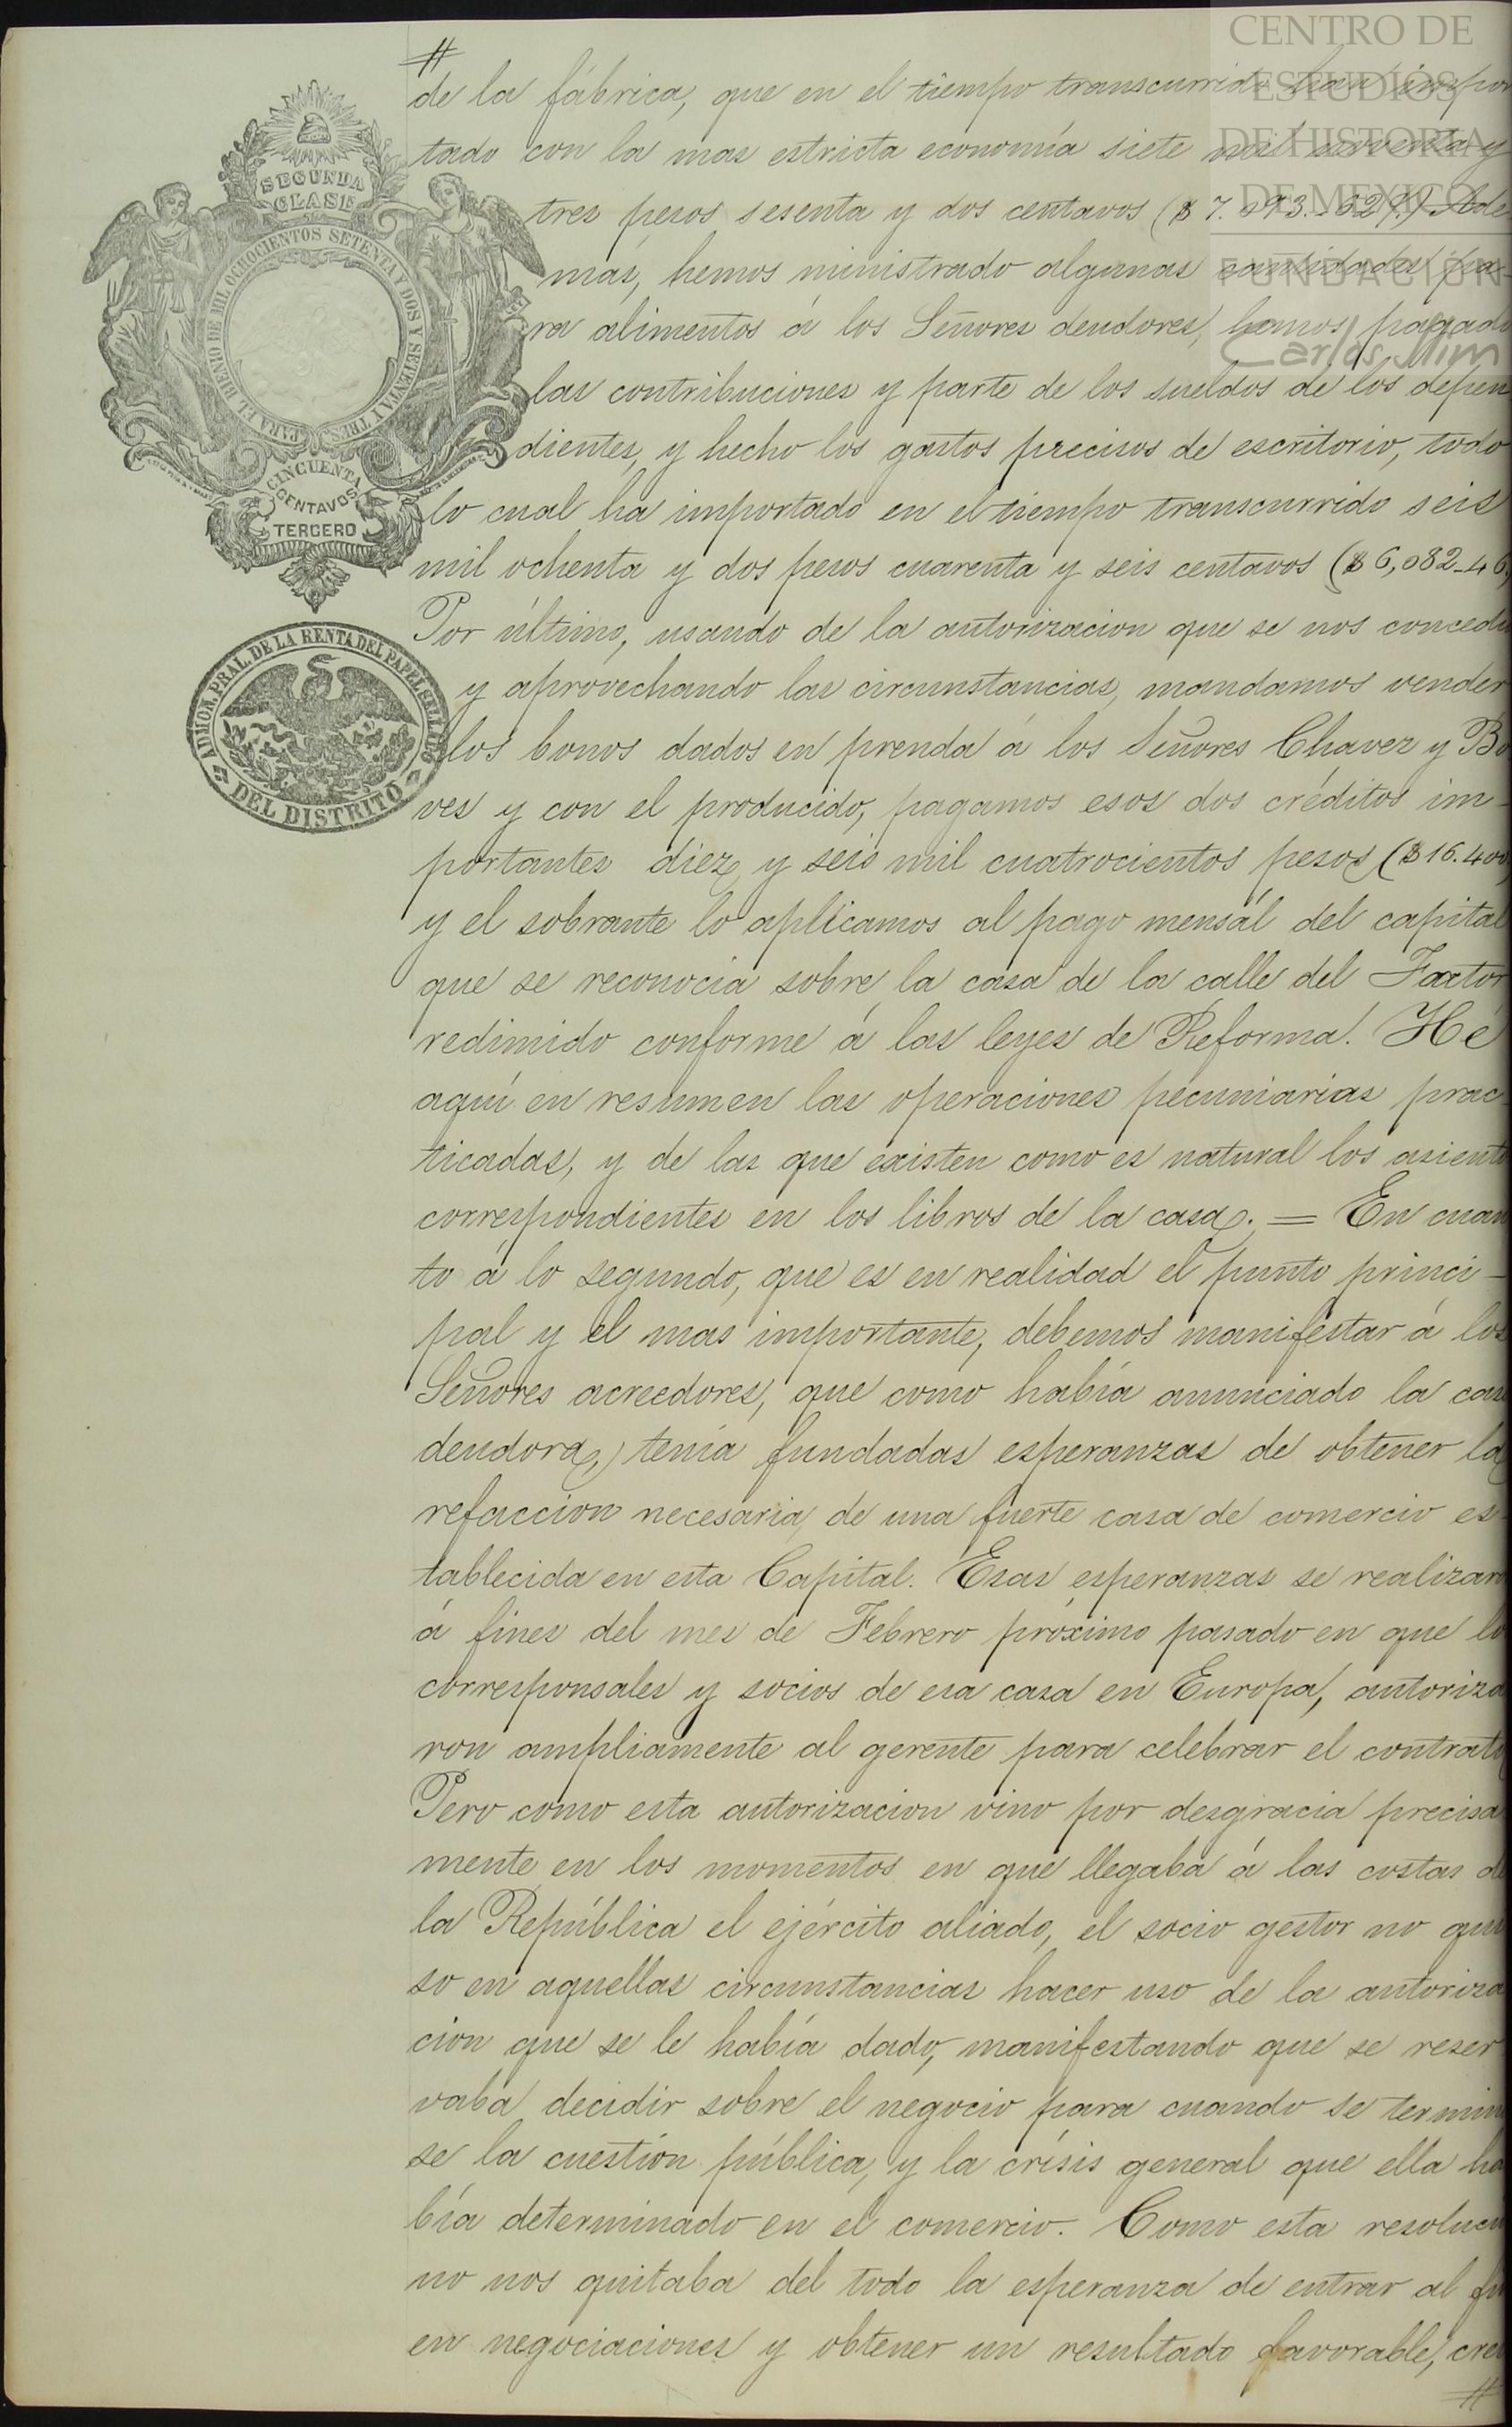 CENTRO DE
ESTUDIOS
DE HISTORIA
DE MEXICO
FUNDACIÓN
Carlos Slim
SEGUNDA
CLASE
PARA EL BIENIO DE MIL OCHOCIENTOS SETENTA Y DOS Y SETENTA Y TRES
CINCUENTA
CENTAVOS
TERCERO
ADMON. PRAL. DE LA RENTA DEL PAPEL SELLADO
DEL DISTRITO
#
de la fábrica, que en el tiempo transcurrido han impor
tado con la mas estricta economía siete mil noventa y
tres pesos sesenta y dos centavos ($ 7.093..62 ¢.) Ade
más, hemos ministrado algunas cantidades pa-
ra alimentos á los Señores deudores, hemos pagado
las contribuciones y parte de los sueldos de los depen
dientes, y hecho los gastos precisos de escritorio, todo
lo cual ha importado en el tiempo transcurrido seis
mil ochenta y dos pesos cuarenta y seis centavos ($ 6,082-46)
Por último, usando de la autorizacion que se nos concedió
y aprovechando las circunstancias, mandamos vender
los bonos dados en prenda á los Señores Chavez y Bo
ves y con el producido, pagamos esos dos créditos im-
portantes diez y seis mil cuatrocientos pesos ($ 16.400)
y el sobrante lo aplicamos al pago mensál del capital
que se reconocía sobre la casa de la calle del Factor
redimido conforme á las leyes de Reforma. Hé
aquí en resumen las operaciones pecuniarias prac
ticadas, y de las que existen como es natural los asiento
correspondientes en los libros de la casa. = En cuan
to á lo segundo, que es en realidad el punto princi-
pal y el mas importante, debemos manifestar á los
Señores acreedores, que como había anunciado la casa
deudora, tenía fundadas esperanzas de obtener la
refaccion necesaria, de una fuerte casa de comercio es-
tablecida en esta Capital. Esas esperanzas se realizaro
á fines del mes de Febrero próximo pasado en que lo
corresponsales y socios de esa casa en Europa, autoriza
ron ampliamente al gerente para celebrar el contrato
Pero como esta autorizacion vino por desgracia precisa
mente en los momentos en que llegaba á las costas de
la República el ejército aliado, el socio gestor no qui
so en aquellas circunstancias hacer uso de la autoriza
cion que se le había dado, manifestando que se reser
vaba decidir sobre el negocio para cuando se termina
se la cuestión pública, y la crísis general que ella ha
bía determinado en el comercio. Como esta resoluci
no nos quitaba del todo la esperanza de entrar al fin
en negociaciones y obtener un resultado favorable, crei
#